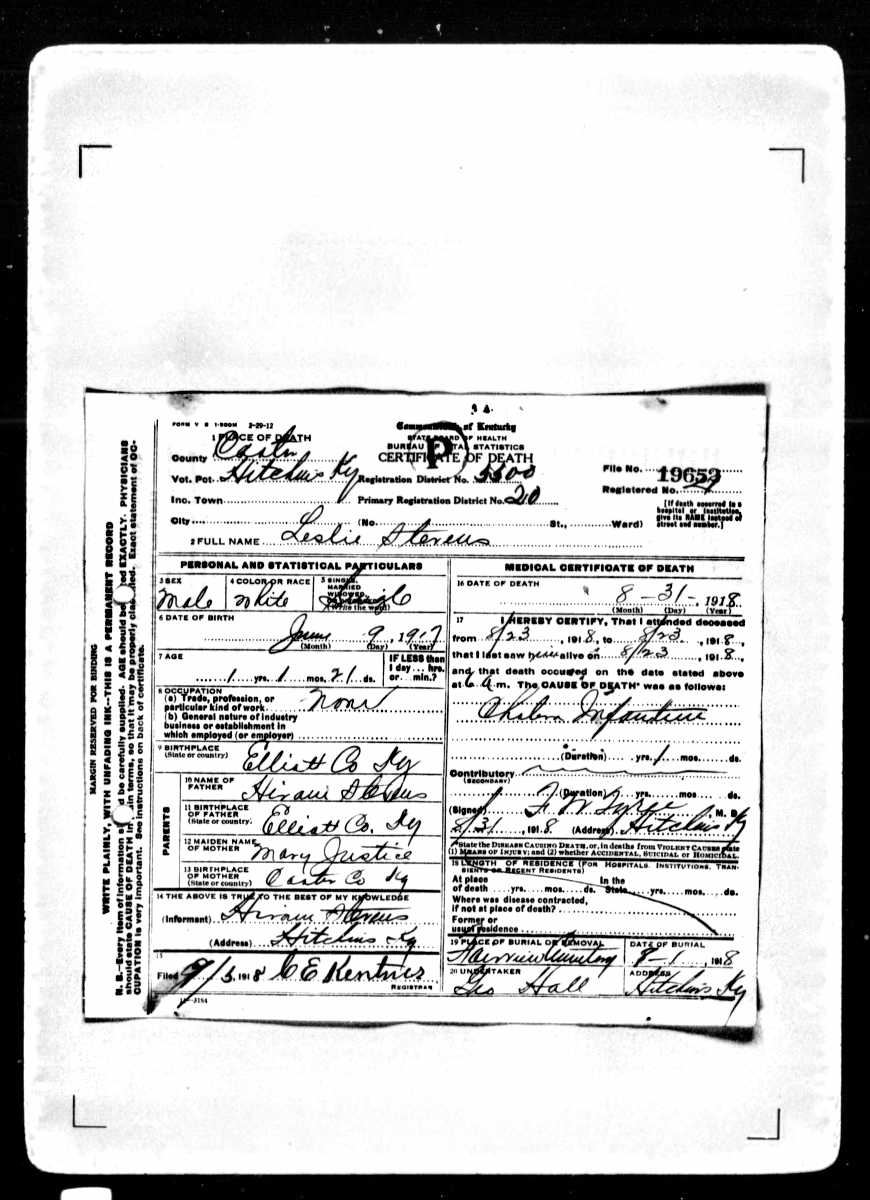 FORM V S 1-500M 2-29-12
Commonwealth of Kentucky
STATE BOARD OF HEALTH
BUREAU OF VITAL STATISTICS
CERTIFICATE OF DEATH
P
1 PLACE OF DEATH
County Carter
Vot. Pct. Hitchins Ky Registration District No. 5500
File No. 19653
Inc. Town Primary Registration District No. 20
Registered No.
City (No St., Ward)
[If death occurred in a hospital or institution, give its NAME instead of street and number.]
2 FULL NAME Leslie Stevens
PERSONAL AND STATISTICAL PARTICULARS
3 SEX Male
4 COLOR OR RACE White
5 SINGLE, MARRIED, WIDOWED Single
(Write the word)
6 DATE OF BIRTH
June 9, 1917
(Month) (Day) (Year)
7 AGE
1 yrs. 1 mos. 21 ds.
IF LESS than 1 day... hrs. or... min.?
8 OCCUPATION
(a) Trade, profession, or particular kind of work None
(b) General nature of industry
business or establishment in
which employed (or employer)
9 BIRTHPLACE
(State or country) Elliott Co Ky
PARENTS
10 NAME OF FATHER Hiram Stevens
11 BIRTHPLACE OF FATHER
(State or country) Elliott Co. Ky
12 MAIDEN NAME OF MOTHER Mary Justice
13 BIRTHPLACE OF MOTHER
(State or country) Carter Co Ky
14 THE ABOVE IS TRUE TO THE BEST OF MY KNOWLEDGE
(Informant) Hiram Stevens
(Address) Hitchins Ky
15
Filed 1918 C E
REGISTRAR
11-3184
MEDICAL CERTIFICATE OF DEATH
16 DATE OF DEATH
8-31-, 1918
(Month) (Day) (Year)
17 I HEREBY CERTIFY, That I attended deceased
from 8/23, 1918, to 8/23, 1918,
that I last saw him alive on 8/23, 1918,
and that death occurred on the date stated above
at 6 a m. The CAUSE OF DEATH* was as follows:
Cholera Infantum
(Duration) yrs. 1 mos. ds.
Contributory
(SECONDARY)
(Duration) yrs. mos. ds.
(Signed), M. D.
8/31, 1918 (Address) Hitchins Ky
*State the DISEASE CAUSING DEATH, or, in deaths from VIOLENT CAUSES state
(1) MEANS OF INJURY; and (2) whether ACCIDENTAL, SUICIDAL or HOMICIDAL.
18 LENGTH OF RESIDENCE (FOR HOSPITALS, INSTITUTIONS, TRANSIENTS OR RECENT RESIDENTS)
At place of death yrs. mos. ds. In the State yrs. mos. ds.
Where was disease contracted,
if not at place of death?
Former or
usual residence
19 PLACE OF BURIAL OR REMOVAL
Cemetery
DATE OF BURIAL
8-1, 1918
20 UNDERTAKER
Geo Hall
ADDRESS
Hitchins Ky
MARGIN RESERVED FOR BINDING
WRITE PLAINLY, WITH UNFADING INK—THIS IS A PERMANENT RECORD
N. B.—Every item of information should be carefully supplied. AGE should be stated EXACTLY. PHYSICIANS
should state CAUSE OF DEATH in plain terms, so that it may be properly classified. Exact statement of OC-
CUPATION is very important. See instructions on back of certificate.